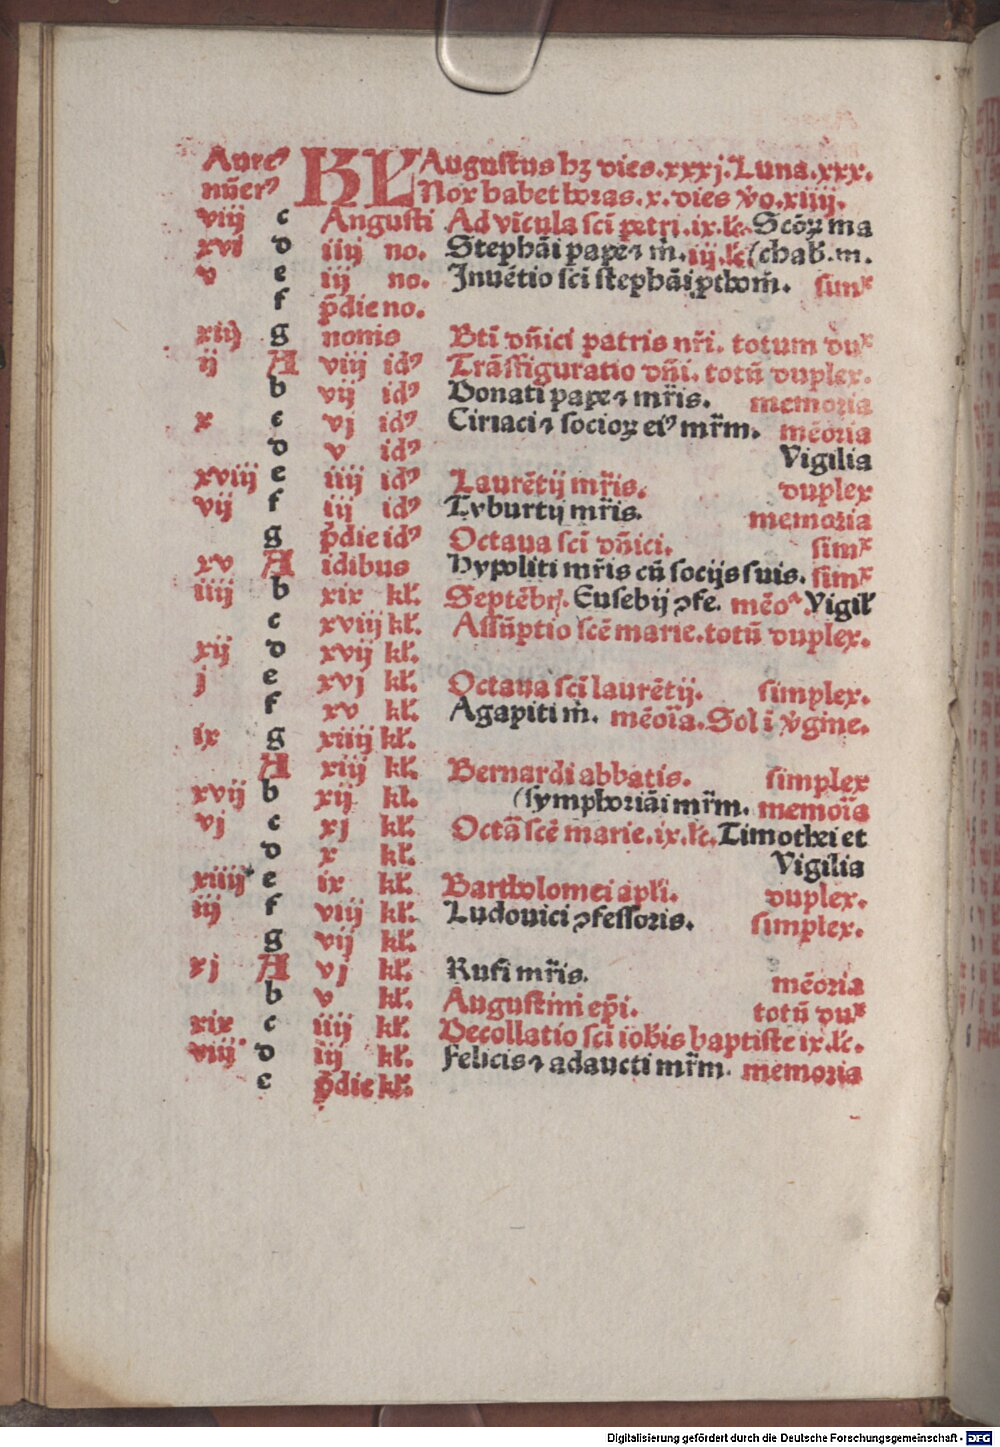 Aureꝰ KL Augustus hꝫ dies.xxxj.Luna.xxx.
nūerꝰ Nox habet horas.x.dies v̊o.xiiij.
viij c Augusti Ad vīcula sci petri.ix.lc̄.Scōꝝ ma
xvi d iiij no. Stephāi pape ⁊ m̄.iij.lc̄.(chab.m.
v e iij no. Inuētio sci stephāi ꝓthom̄. simˣ
f p̄die no.
xiij g nonis Bti dn̄ici patris nr̄i. totum duˣ
ij A viij idꝰ Trāsfiguratio dn̄i. totū duplex.
b vij idꝰ Donati pape ⁊ mr̄is. memoria
x c vj idꝰ Ciriaci ⁊ socioꝝ eiꝰ mr̄m. mēoria
d v idꝰ Vigilia
xviij e iiij idꝰ Laurētij mr̄is. duplex
vij f iij idꝰ Tyburtij mr̄is. memoria
g p̄die idꝰ Octaua sci dn̄ici. simˣ
xv A idibus Hypoliti mr̄is cū socijs suis. simˣ
iiij b xix kl̄. Septēbr̄. Eusebij ꝯfe. mēoᵃ.Vigil̄
c xviij kl̄. Assūptio scē marie.totū duplex.
xij d xvij kl̄.
j e xvj kl̄. Octaua sci laurētij. simplex.
f xv kl̄. Agapiti m̄. mēoīa.Sol ī v̊gine.
ix g xiiij kl̄.
A xiij kl̄. Bernardi abbatis. simplex
xvij b xij kl̄. (symphoriāi mr̄m. memoīa
vj c xj kl̄. Octā scē marie.ix.lc̄.Timothei et
d x kl̄. Vigilia
xiiij e ix kl̄. Bartholomei apl̄i. duplex.
iij f viij kl̄. Ludouici ꝯfessoris. simplex.
g vij kl̄.
xj A vj kl̄. Rufi mr̄is. mēoria
b v kl̄. Augustini ep̄i. totū duˣ
xix c iiij kl̄. Decollatio sci ioh̄is baptiste ix.lc̄.
viij d iij kl̄. Felicis ⁊ adaucti mr̄m. memoria
e p̄die kl̄.
Digitalisierung gefördert durch die Deutsche Forschungsgemeinschaft - DFG